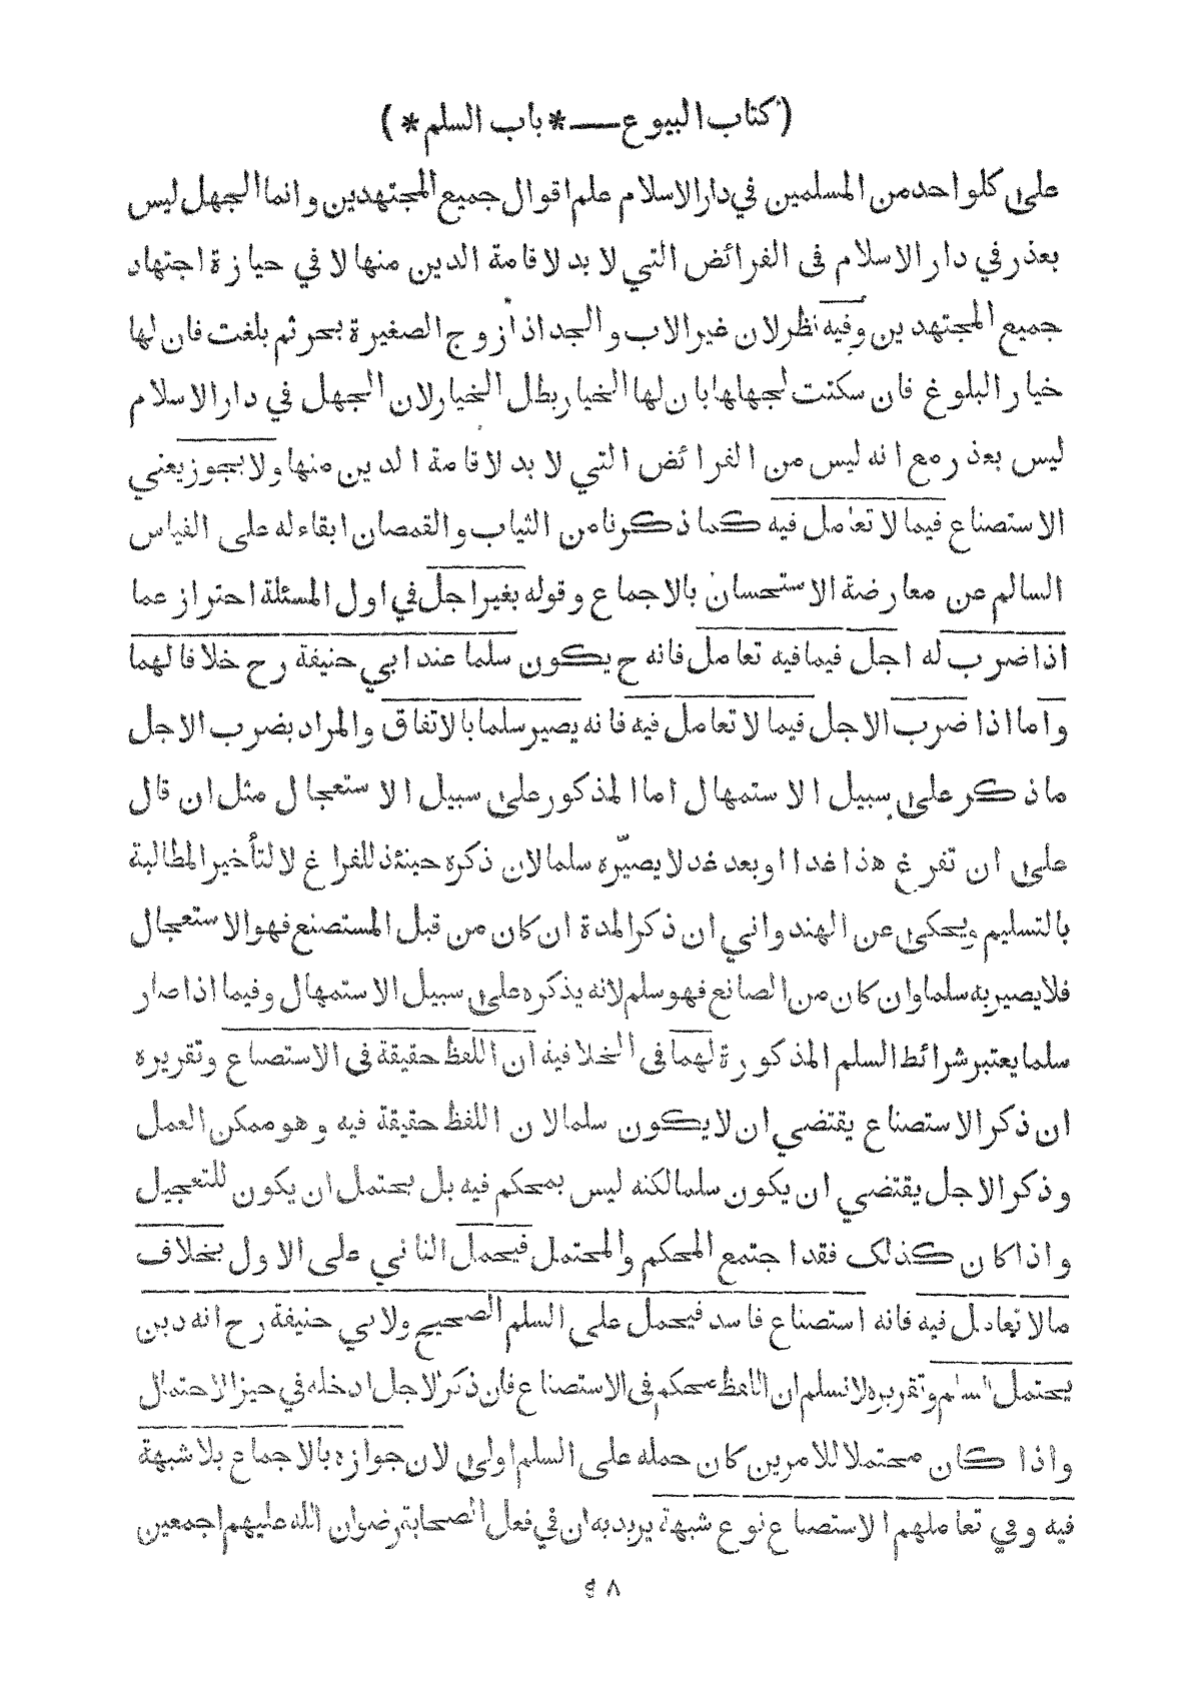 (كتاب البيوع — * باب السلم *)
على كل واحد من المسلمين في دار الاسلام علم اقوال جميع المجتهدين وانما الجهل ليس
بعذر في دار الاسلام فى الفرائض التي لا بد لاقامة الدين منها لا في حيازة اجتهاد
جميع المجتهدين وفيه نظر لان غير الاب والجد اذا زوج الصغيرة بحر ثم بلغت فان لها
خيار البلوغ فان سكتت لجهلها بان لها الخيار بطل الخيار لان الجهل في دار الاسلام
ليس بعذر مع انه ليس من الفرائض التي لا بد لاقامة الدين منها ولا يجوز يعني
الاستصناع فيما لا تعامل فيه كما ذكرنا من الثياب والقمصان ابقاء له على القياس
السالم عن معارضة الاستحسان بالاجماع وقوله بغير اجل في اول المسئلة احتراز عما
اذا ضرب له اجل فيما فيه تعامل فانه ح يكون سلما عند ابي حنيفة رح خلافا لهما
واما اذا ضرب الاجل فيما لا تعامل فيه فانه يصير سلما بالاتفاق والمراد بضرب الاجل
ماذكر على سبيل الاستمهال اما المذكور على سبيل الاستعجال مثل ان قال
على ان تفرغ هذا غدا او بعد غد لا يصيّره سلما لان ذكره حينئذ للفراغ لا لتأخير المطالبة
بالتسليم ويحكى عن الهندواني ان ذكر المدة ان كان من قبل المستصنع فهو الاستعجال
فلا يصير به سلما وان كان من الصانع فهو سلم لانه يذكره على سبيل الاستمهال وفيما اذا صار
سلما يعتبر شرائط السلم المذكورة لهما فى الخلافية ان اللفظ حقيقة فى الاستصناع وتقريره
ان ذكر الاستصناع يقتضي ان لا يكون سلما لان اللفظ حقيقة فيه وهو ممكن العمل
وذكر الاجل يقتضي ان يكون سلما لكنه ليس بمحكم فيه بل يحتمل ان يكون للتعجيل
واذا كان كذلك فقد اجتمع المحكم والمحتمل فيحمل الثاني على الاول بخلاف
مالا تعامل فيه فانه استصناع فاسد فيحمل على السلم الصحيح ولابي حنيفة رح انه دين
يحتمل السلم وتقريره لا نسلم ان اللفظ محكم فى الاستصناع فان ذكر الاجل ادخله في حيز الاحتمال
واذا كان محتملا للامرين كان حمله على السلم اولى لان جوازه بالاجماع بلا شبهة
فيه وفي تعاملهم الاستصناع نوع شبهة يريد به ان في فعل الصحابة رضوان الله عليهم اجمعين